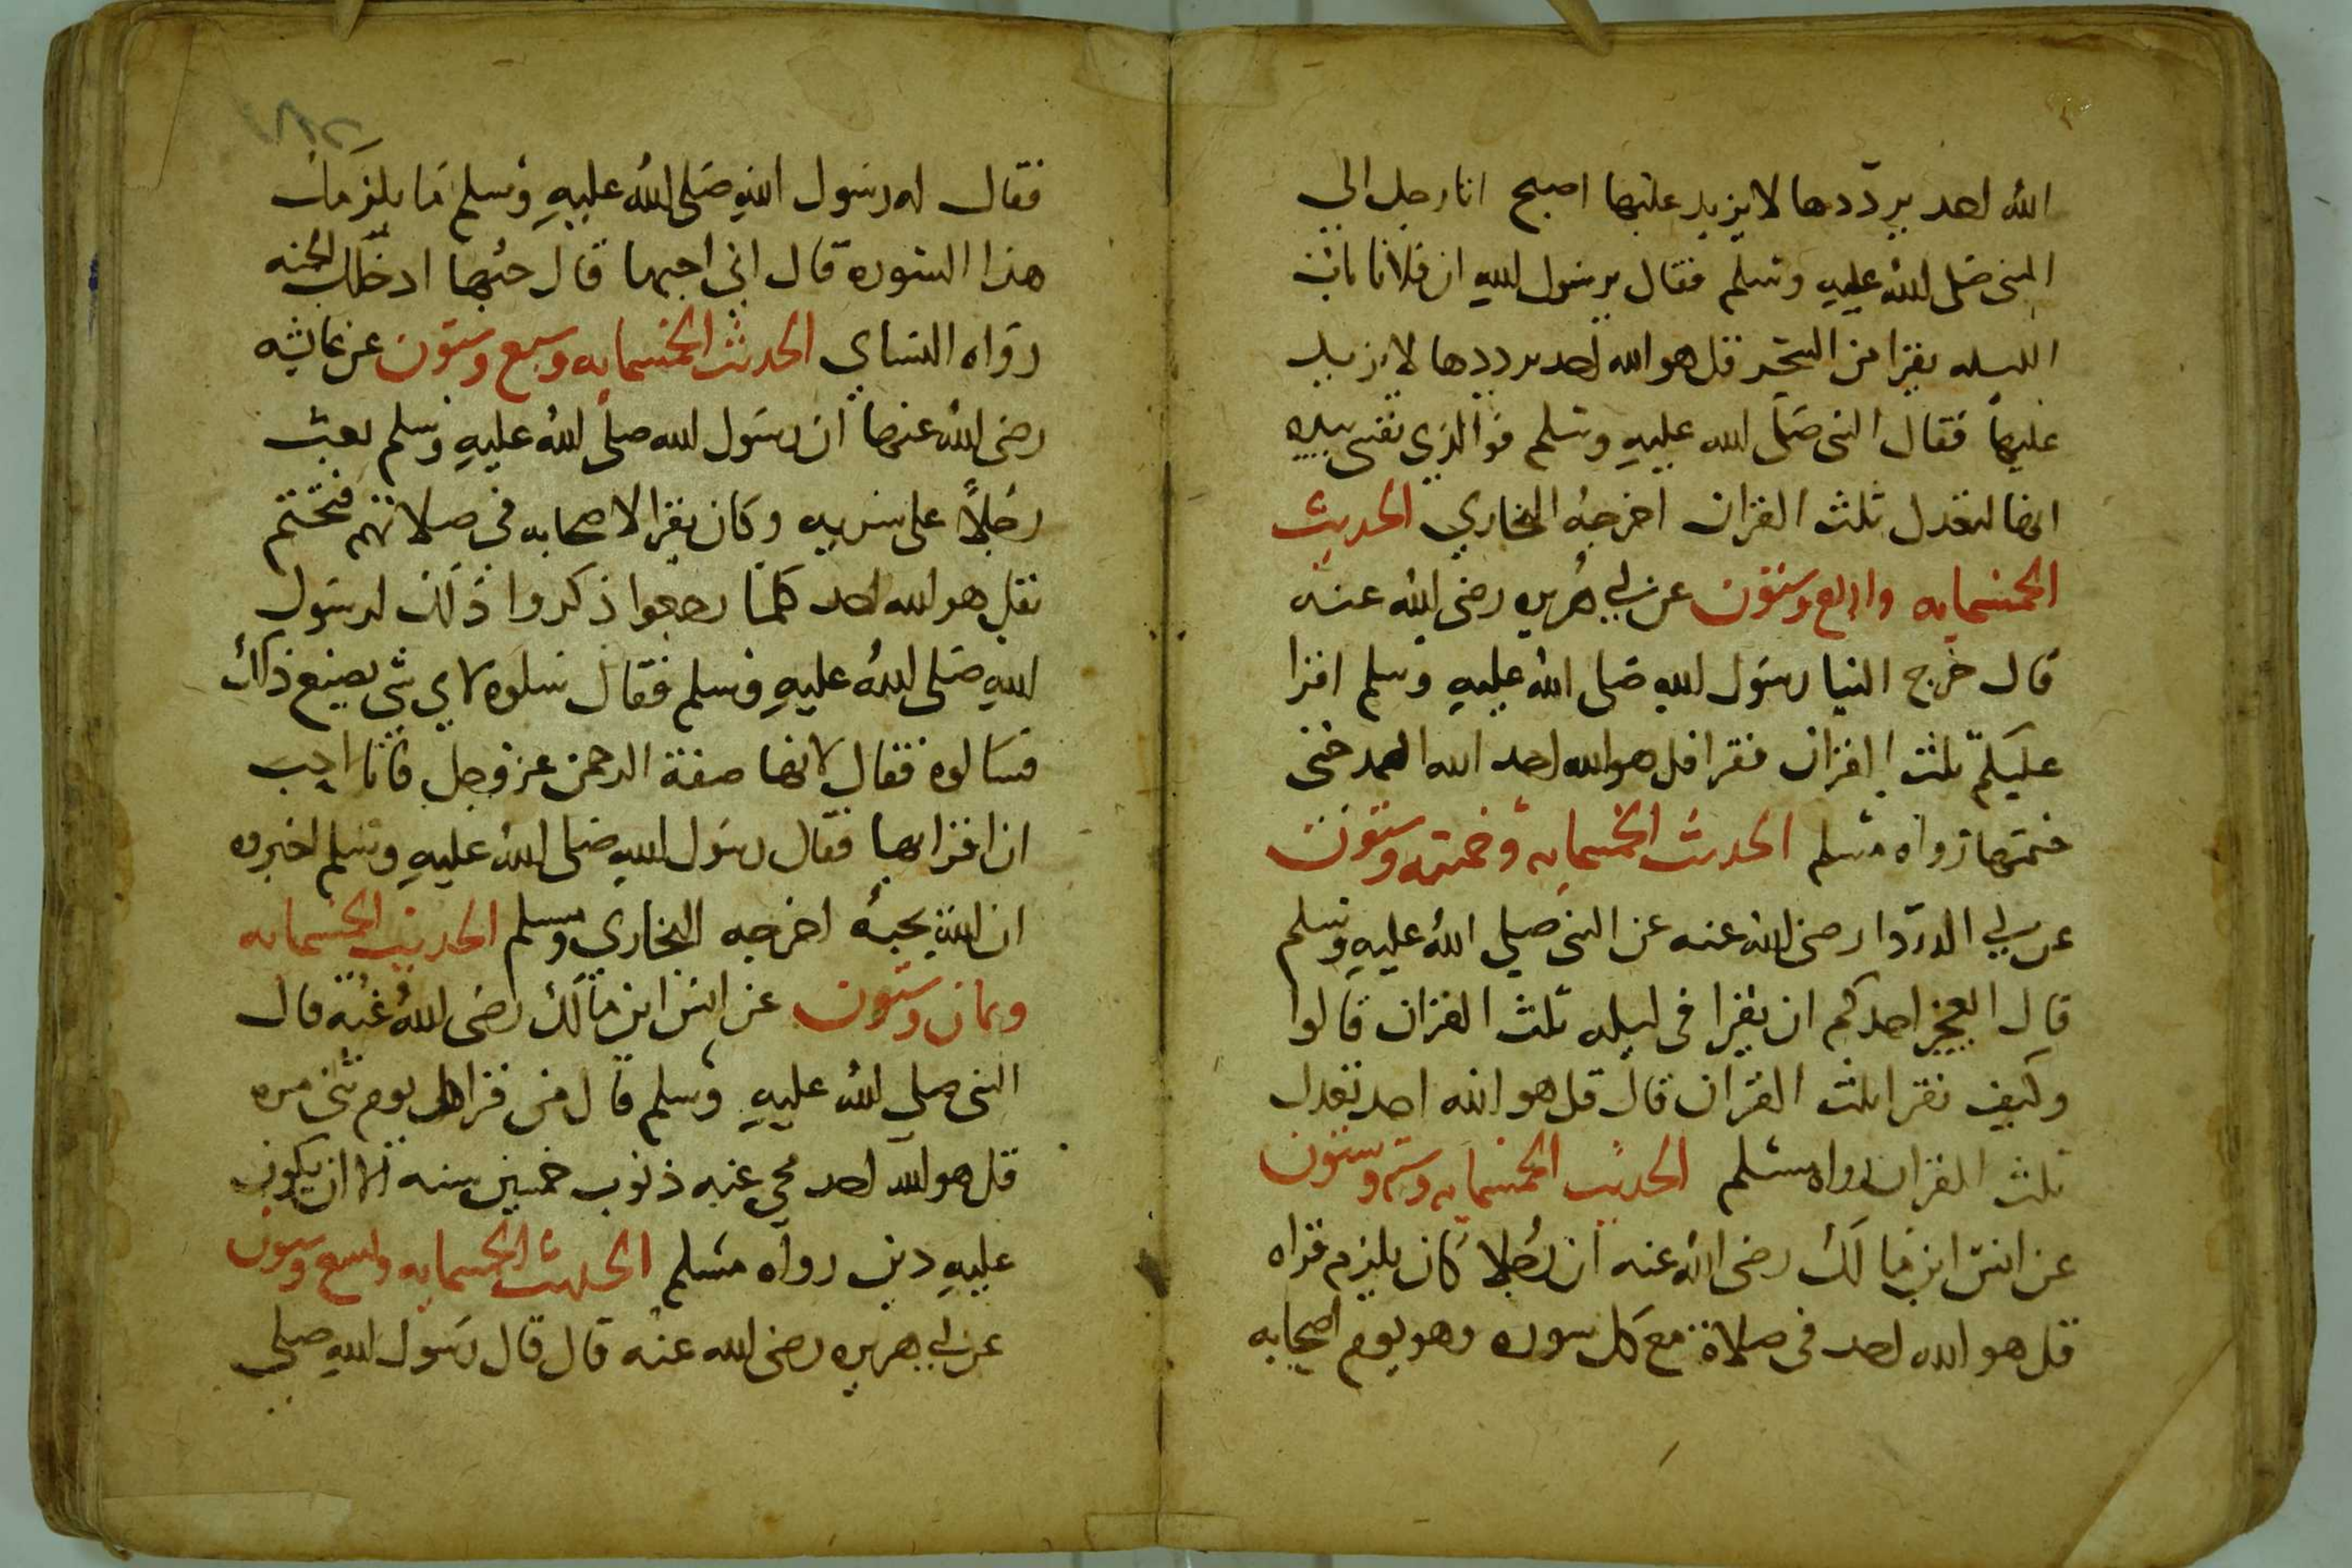 الله احد يرددها لا يزيد عليها اصبح اتا رجل الى
النبى صلى الله عليه وسلم فقال يرسول الله ان فلانا بات
الليله يقرا من السحر قل هو الله احد يرددها لا يزيد
عليها فقال النبى صلى الله عليه وسلم فوالذي نفسى بيده
انها لتعدل ثلث القران اخرجه البخاري الحديث
الخمسمايه واربع وستون عن ابي هريره رضى الله عنه
قال خرج الينا رسول الله صلى الله عليه وسلم اقرا
عليكم ثلث القران فقرا قل هو الله احد الله الصمد حتى
ختمها رواه مسلم الحديث الخمسمايه وخمسه وستون
عن ابي الدردا رضى الله عنه عن النبى صلي الله عليه وسلم
قال ايعجز احدكم ان يقرا فى ليله ثلث القران قالوا
وكيف نقرا ثلث القران قال قل هو الله احد تعدل
ثلث القران رواه مسلم الحديث الخمسمايه وسته وستون
عن انس ابن مالك رضى الله عنه ان رجلا كان يلزم قراه
قل هو الله احد فى صلاة مع كل سوره وهو يوم اصحابه
فقال له رسول الله صلى الله عليه وسلم ما يلزمك
هذا السوره قال انى احبها قال حبها ادخلك الجنه
رواه النساي الحديث الخمسمايه وسبع وستون عن عايشه
رضى الله عنها ان رسول الله صلى الله عليه وسلم بعث
رجلاً على سريه وكان يقرا لاصحابه فى صلاتهم فتختم
بقل هو الله احد كلما رجعوا ذكروا ذلك لرسول
الله صلى الله عليه وسلم فقال سلوه لاي شى يصنع ذلك
فسالوه فقال لانها صفة الرحمن عز وجل فانا احب
ان اقرا بها فقال رسول الله صلى الله عليه وسلم اخبروه
ان الله يحبه اخرجه البخاري ومسلم الحديث الخمسمايه
وثمان وستون عن انس ابن مالك رضى الله عنه قال
النبى صلي الله عليه وسلم قال من قرا كل يوم متى مره
قل هو الله احد محي عنه ذنوب خمسين سنه الا ان يكون
عليه دين رواه مسلم الحديث الخمسمايه واسع وستون
عن ابي هريره رضى الله عنه قال قال رسول الله صلى